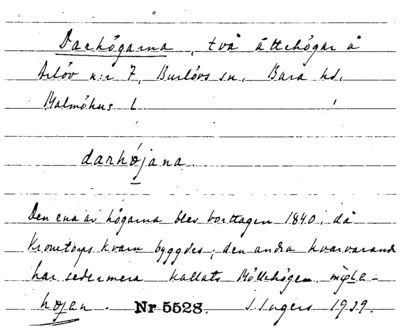 Darhögarna, två ättehögar å
Arlöv n:r 7, Burlövs sn, Bara hd,
Malmöhus l
darhøjana.
Den ena av högarna blev borttagen 1840, då
Kronetorps kvarn byggdes; den andra kvarvarand
har sedermera kallats Möllehögen. mølle-
højen. Nr 5528. I. Ingers 1939.